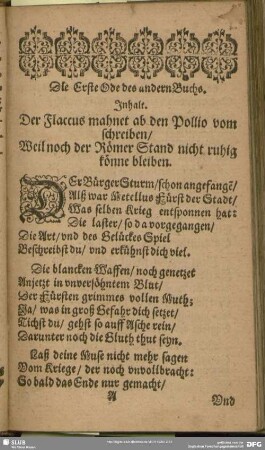 Die Erste Ode des andern Buchs.
Inhalt.
Der Flaccus mahnet ab den Pollio vom
schreiben/
Weil noch der Römer Stand nicht ruhig
könne bleiben.
DEr Bürger Sturm/ schon angefangẽ/
Alß war Metellus Fürst der Stadt/
Was selben Krieg entsponnen hat:
Die laster/ so da vorgegangen/
Die Art/ vnd des Gelückes Spiel
Beschreibst du/ vnd erkühnst dich viel.
Die blancken Waffen/ noch genetzet
Anjetzt in vnversöhntem Blut/
Der Fürsten grimmes vollen Muth;
Ja/ was in groß Gefahr dich setzet/
Tichst du/ gehst so auff Asche rein/
Darunter noch die Gluth thut seyn.
Laß deine Muse nicht mehr sagen
Vom Kriege/ der noch vnvollbracht:
So bald das Ende nur gemacht/
A
Vnd
SLUB
DFG